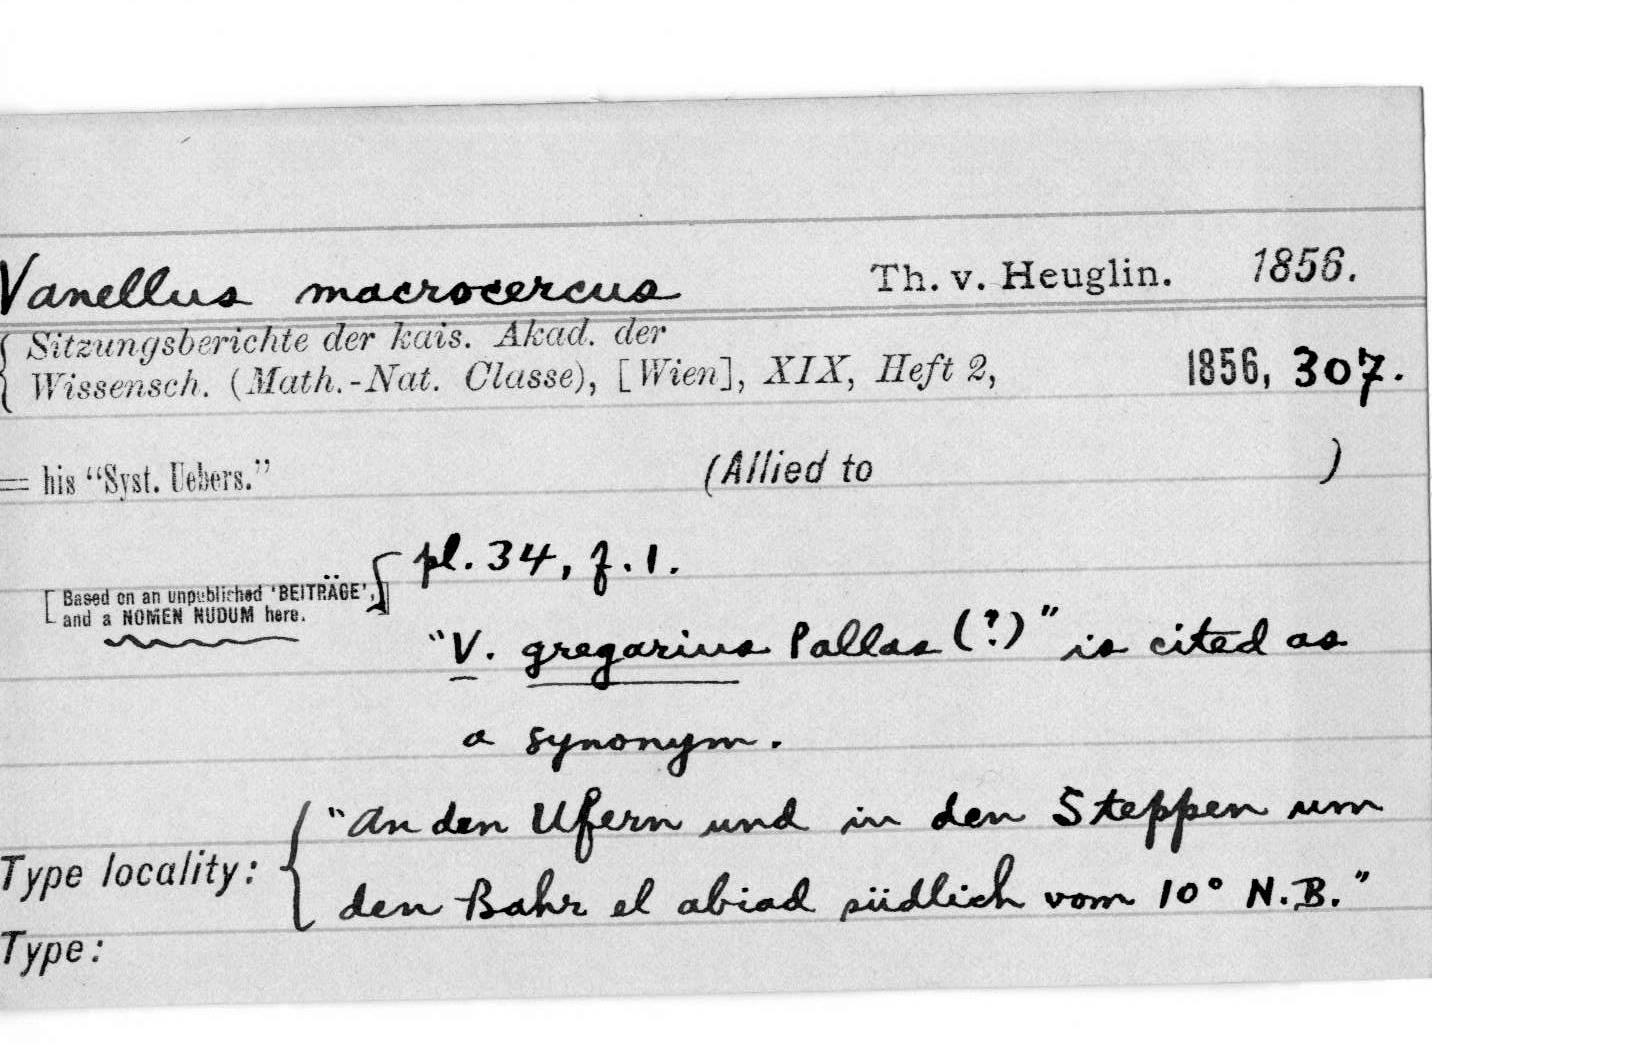 Vanellus macrocercus Th. v. Heuglin. 1856.
Sitzungsberichte der kais. Akad. der
Wissensch. (Math.-Nat. Classe), [Wien], XIX, Heft 2, 1856, 307.
= his “Syst. Uebers.” (Allied to )
pl. 34, f. 1.
[Based on an unpublished 'BEITRÄGE',
and a NOMEN NUDUM here.]
"V. gregarius Pallas (?)" is cited as
a synonym.
"An den Ufern und in den Steppen um
Type locality:
den Bahr el abiad südlich vom 10° N.B."
Type: